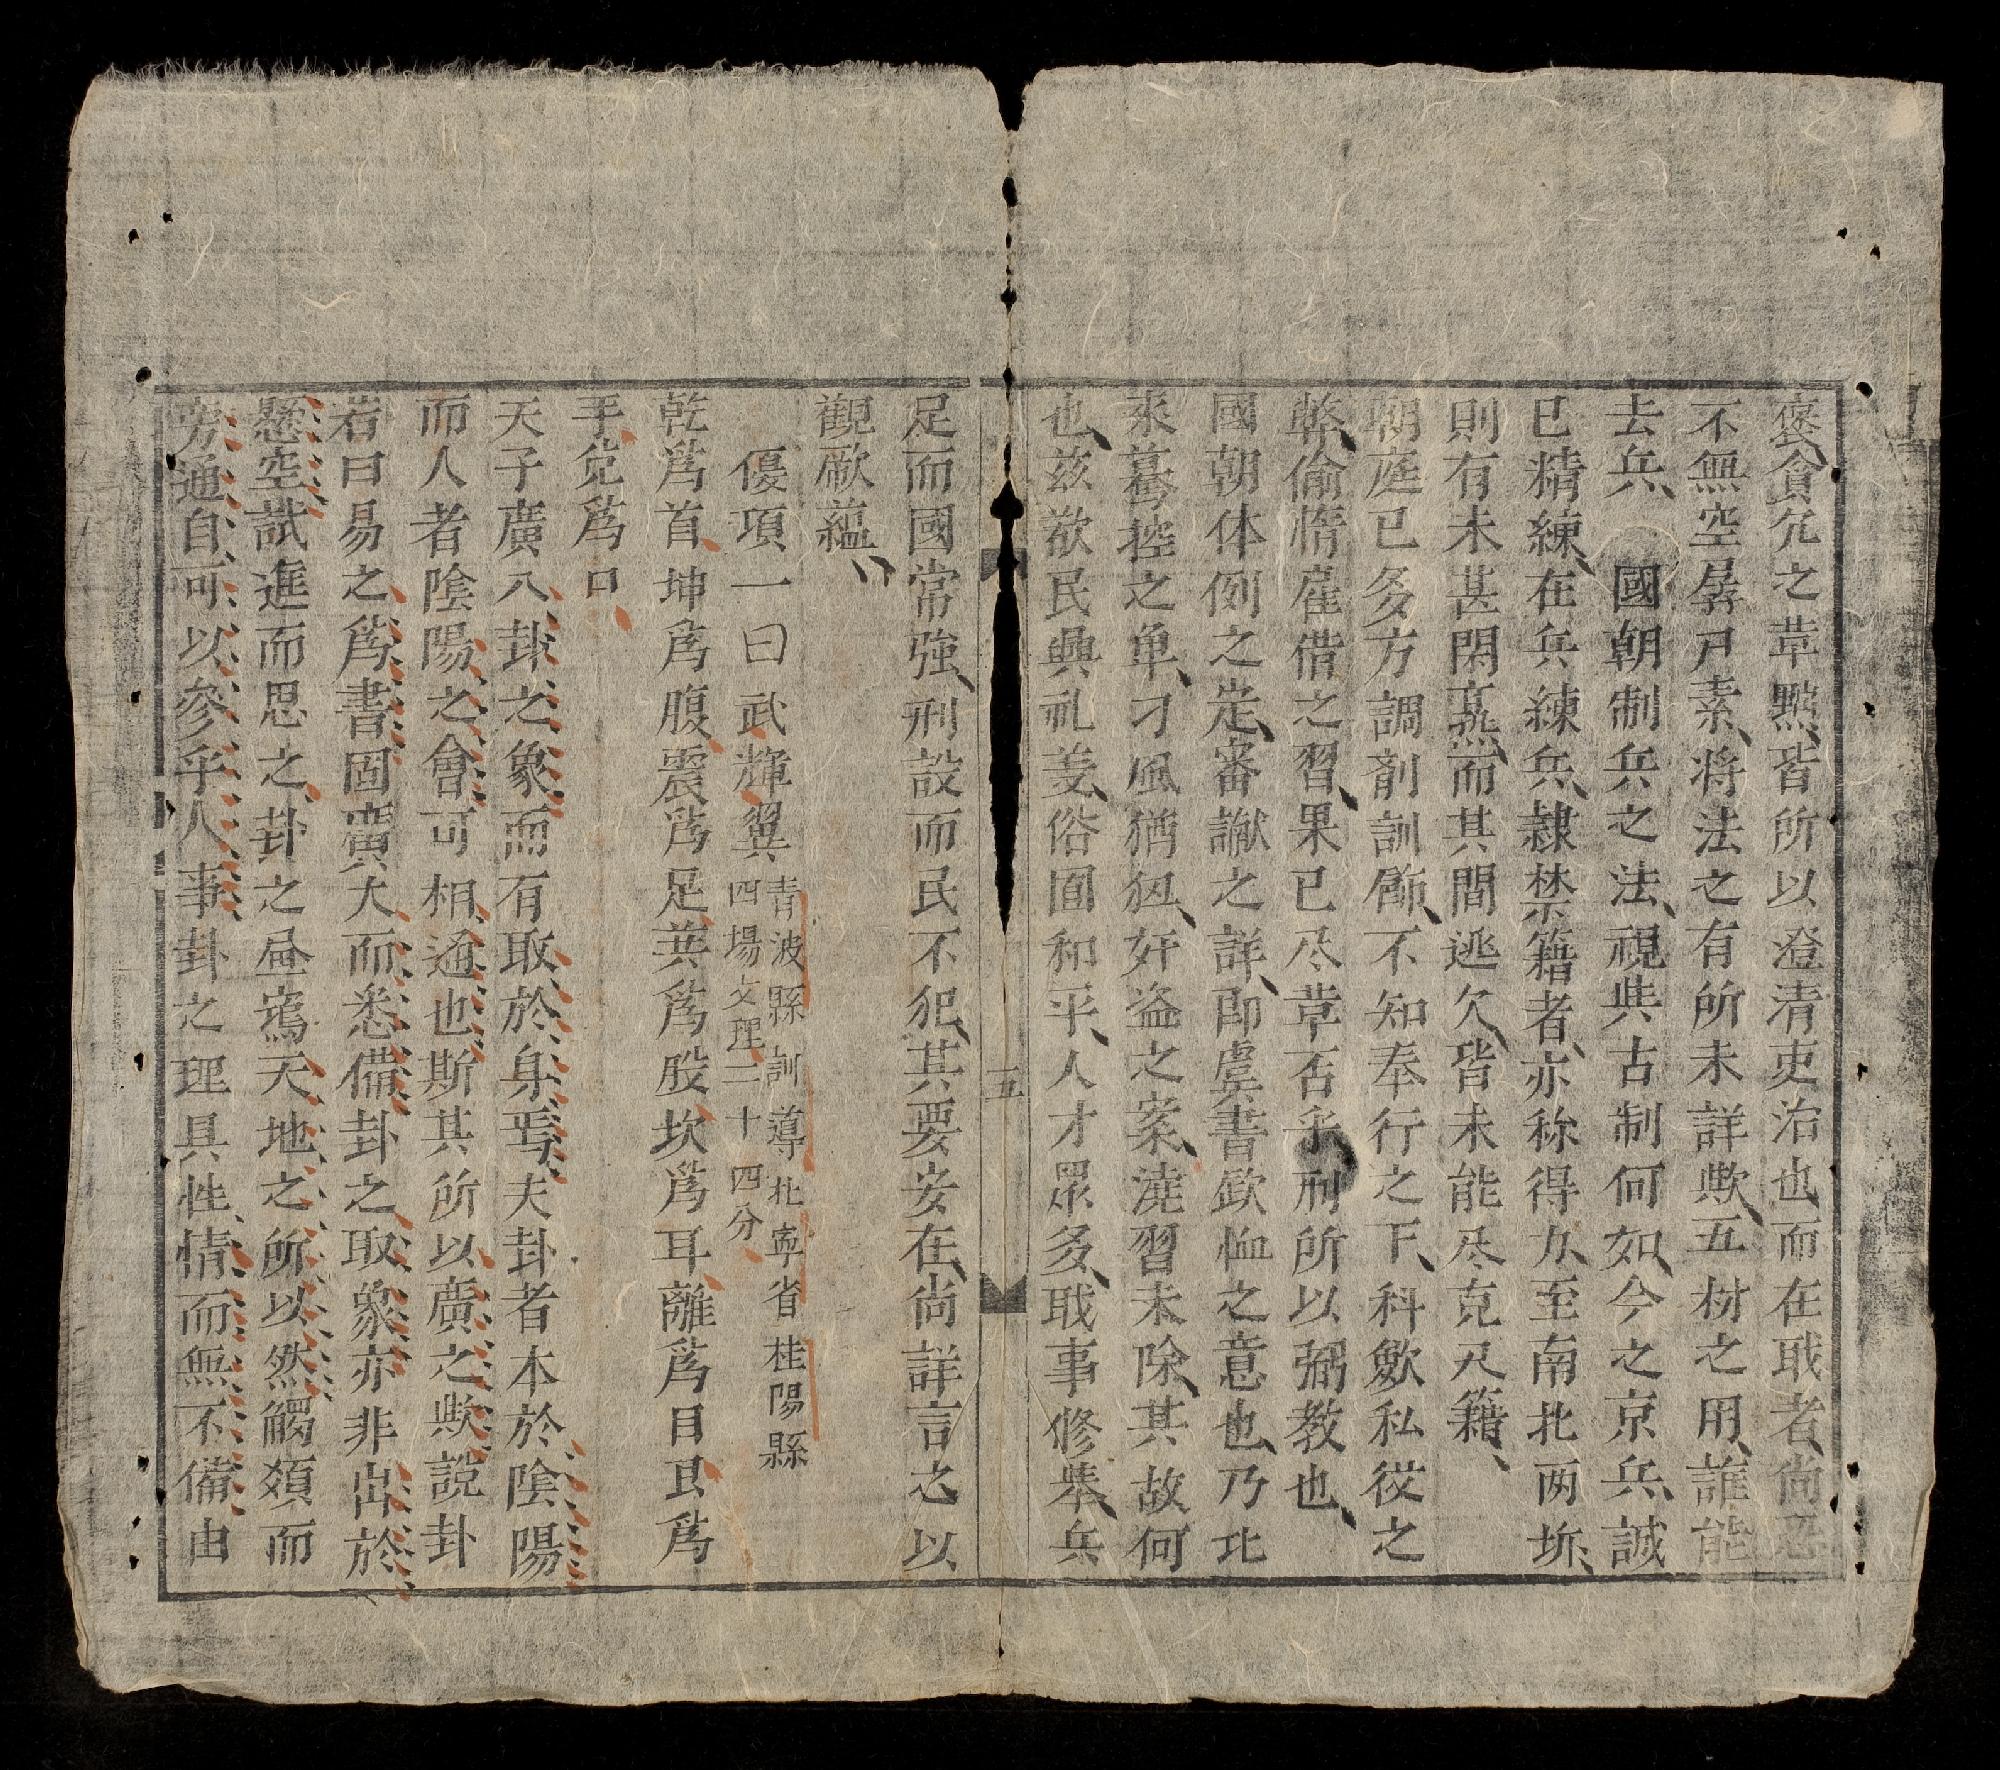 褒貪冗之草點皆所以澄清吏治也而在耺者尚忍
不無空孱尸素將法之有所未詳歟五材之用誰能
去兵國朝制兵之法視與古制何如今之京兵誠
已精練在兵練兵隷禁籍者亦称得力至南北两圻
則有未甚閑熹而其間逃欠皆未能尽克尺籍
朝庭已多方調劑訓飾不知奉行之下科歛私役之
弊偷惰雇借之習果已尽草否乎刑所以弼教也
國朝体例之定審讞之詳即虞書欽恤之意也乃北
來驀控之单刁風猶狃奸盗之案澆習未除其故何
也玆欲民興礼羙俗囿和平人才眾多耺事修举兵
五
足而國常強刑設而民不犯其要安在尚詳言之以
觀厥蘊
優項一曰武輝翼
青波縣訓導北寧省桂陽縣
四場文理二十四分
乾爲首坤爲腹震爲足巽爲股坎爲耳離爲目艮爲
手兌爲口
天子廣八卦之象而有取於身焉夫卦者本於陰陽
而人者陰陽之會可相通也斯其所以廣之歟說卦
若曰易之爲書固廣大而悉備卦之取象亦非出於
懸空試進而思之卦之畫寫天地之所以然觸類而
旁通自可以參乎人事卦之理具性情而無不備由